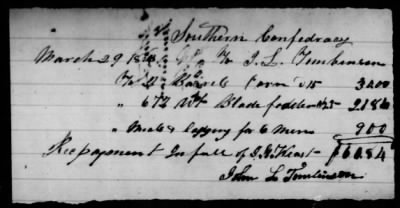 Southern Confedracy
March 29 To J. L. Tomlinson
To Barrels Corn $15 3000
" 672 Wt Blade fodder 2184
" Meals & lodging for 6 men 900
Rec payment In full of $6084
John L Tomlinson